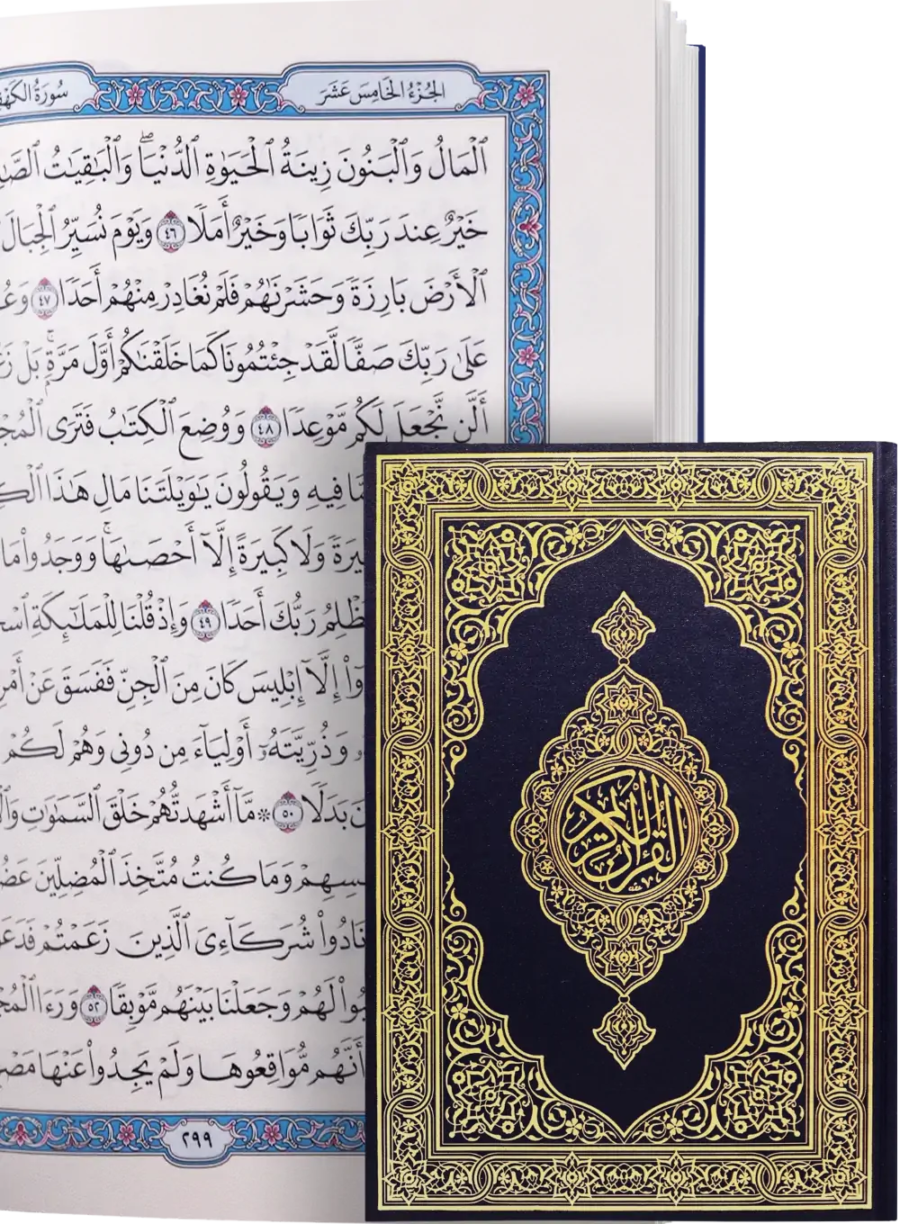 الجُزْءُ الخَامِسَ عَشَرَ
سُورَةُ الكَهْفِ
ٱلْمَالُ وَٱلْبَنُونَ زِينَةُ ٱلْحَيَوٰةِ ٱلدُّنْيَاۖ وَٱلْبَٰقِيَٰتُ
خَيْرٌ عِندَ رَبِّكَ ثَوَابًا وَخَيْرٌ أَمَلًا ٤٦ وَيَوْمَ نُسَيِّرُ ٱلْجِبَالَ
ٱلْأَرْضَ بَارِزَةً وَحَشَرْنَٰهُمْ فَلَمْ نُغَادِرْ مِنْهُمْ أَحَدًا ٤٧
عَلَىٰ رَبِّكَ صَفًّا لَّقَدْ جِئْتُمُونَا كَمَا خَلَقْنَٰكُمْ أَوَّلَ مَرَّةٍۭۚ بَلْ
أَلَّن نَّجْعَلَ لَكُم مَّوْعِدًا ٤٨ وَوُضِعَ ٱلْكِتَٰبُ فَتَرَى
فِيهِ وَيَقُولُونَ يَٰوَيْلَتَنَا مَالِ هَٰذَا
وَلَا كَبِيرَةً إِلَّآ أَحْصَىٰهَاۚ وَوَجَدُوا۟ مَا
رَبُّكَ أَحَدًا ٤٩ وَإِذْ قُلْنَا لِلْمَلَٰٓئِكَةِ
إِلَّآ إِبْلِيسَ كَانَ مِنَ ٱلْجِنِّ فَفَسَقَ عَنْ أَمْرِ
وَذُرِّيَّتَهُۥٓ أَوْلِيَآءَ مِن دُونِى وَهُمْ لَكُمْ
بَدَلًا ٥٠ ۞ مَّآ أَشْهَدتُّهُمْ خَلْقَ ٱلسَّمَٰوَٰتِ
وَمَا كُنتُ مُتَّخِذَ ٱلْمُضِلِّينَ
شُرَكَآءِىَ ٱلَّذِينَ زَعَمْتُمْ
لَهُمْ وَجَعَلْنَا بَيْنَهُم مَّوْبِقًا ٥٢ وَرَءَا
أَنَّهُم مُّوَاقِعُوهَا وَلَمْ يَجِدُوا۟ عَنْهَا
٢٩٩
القرآن الكريم